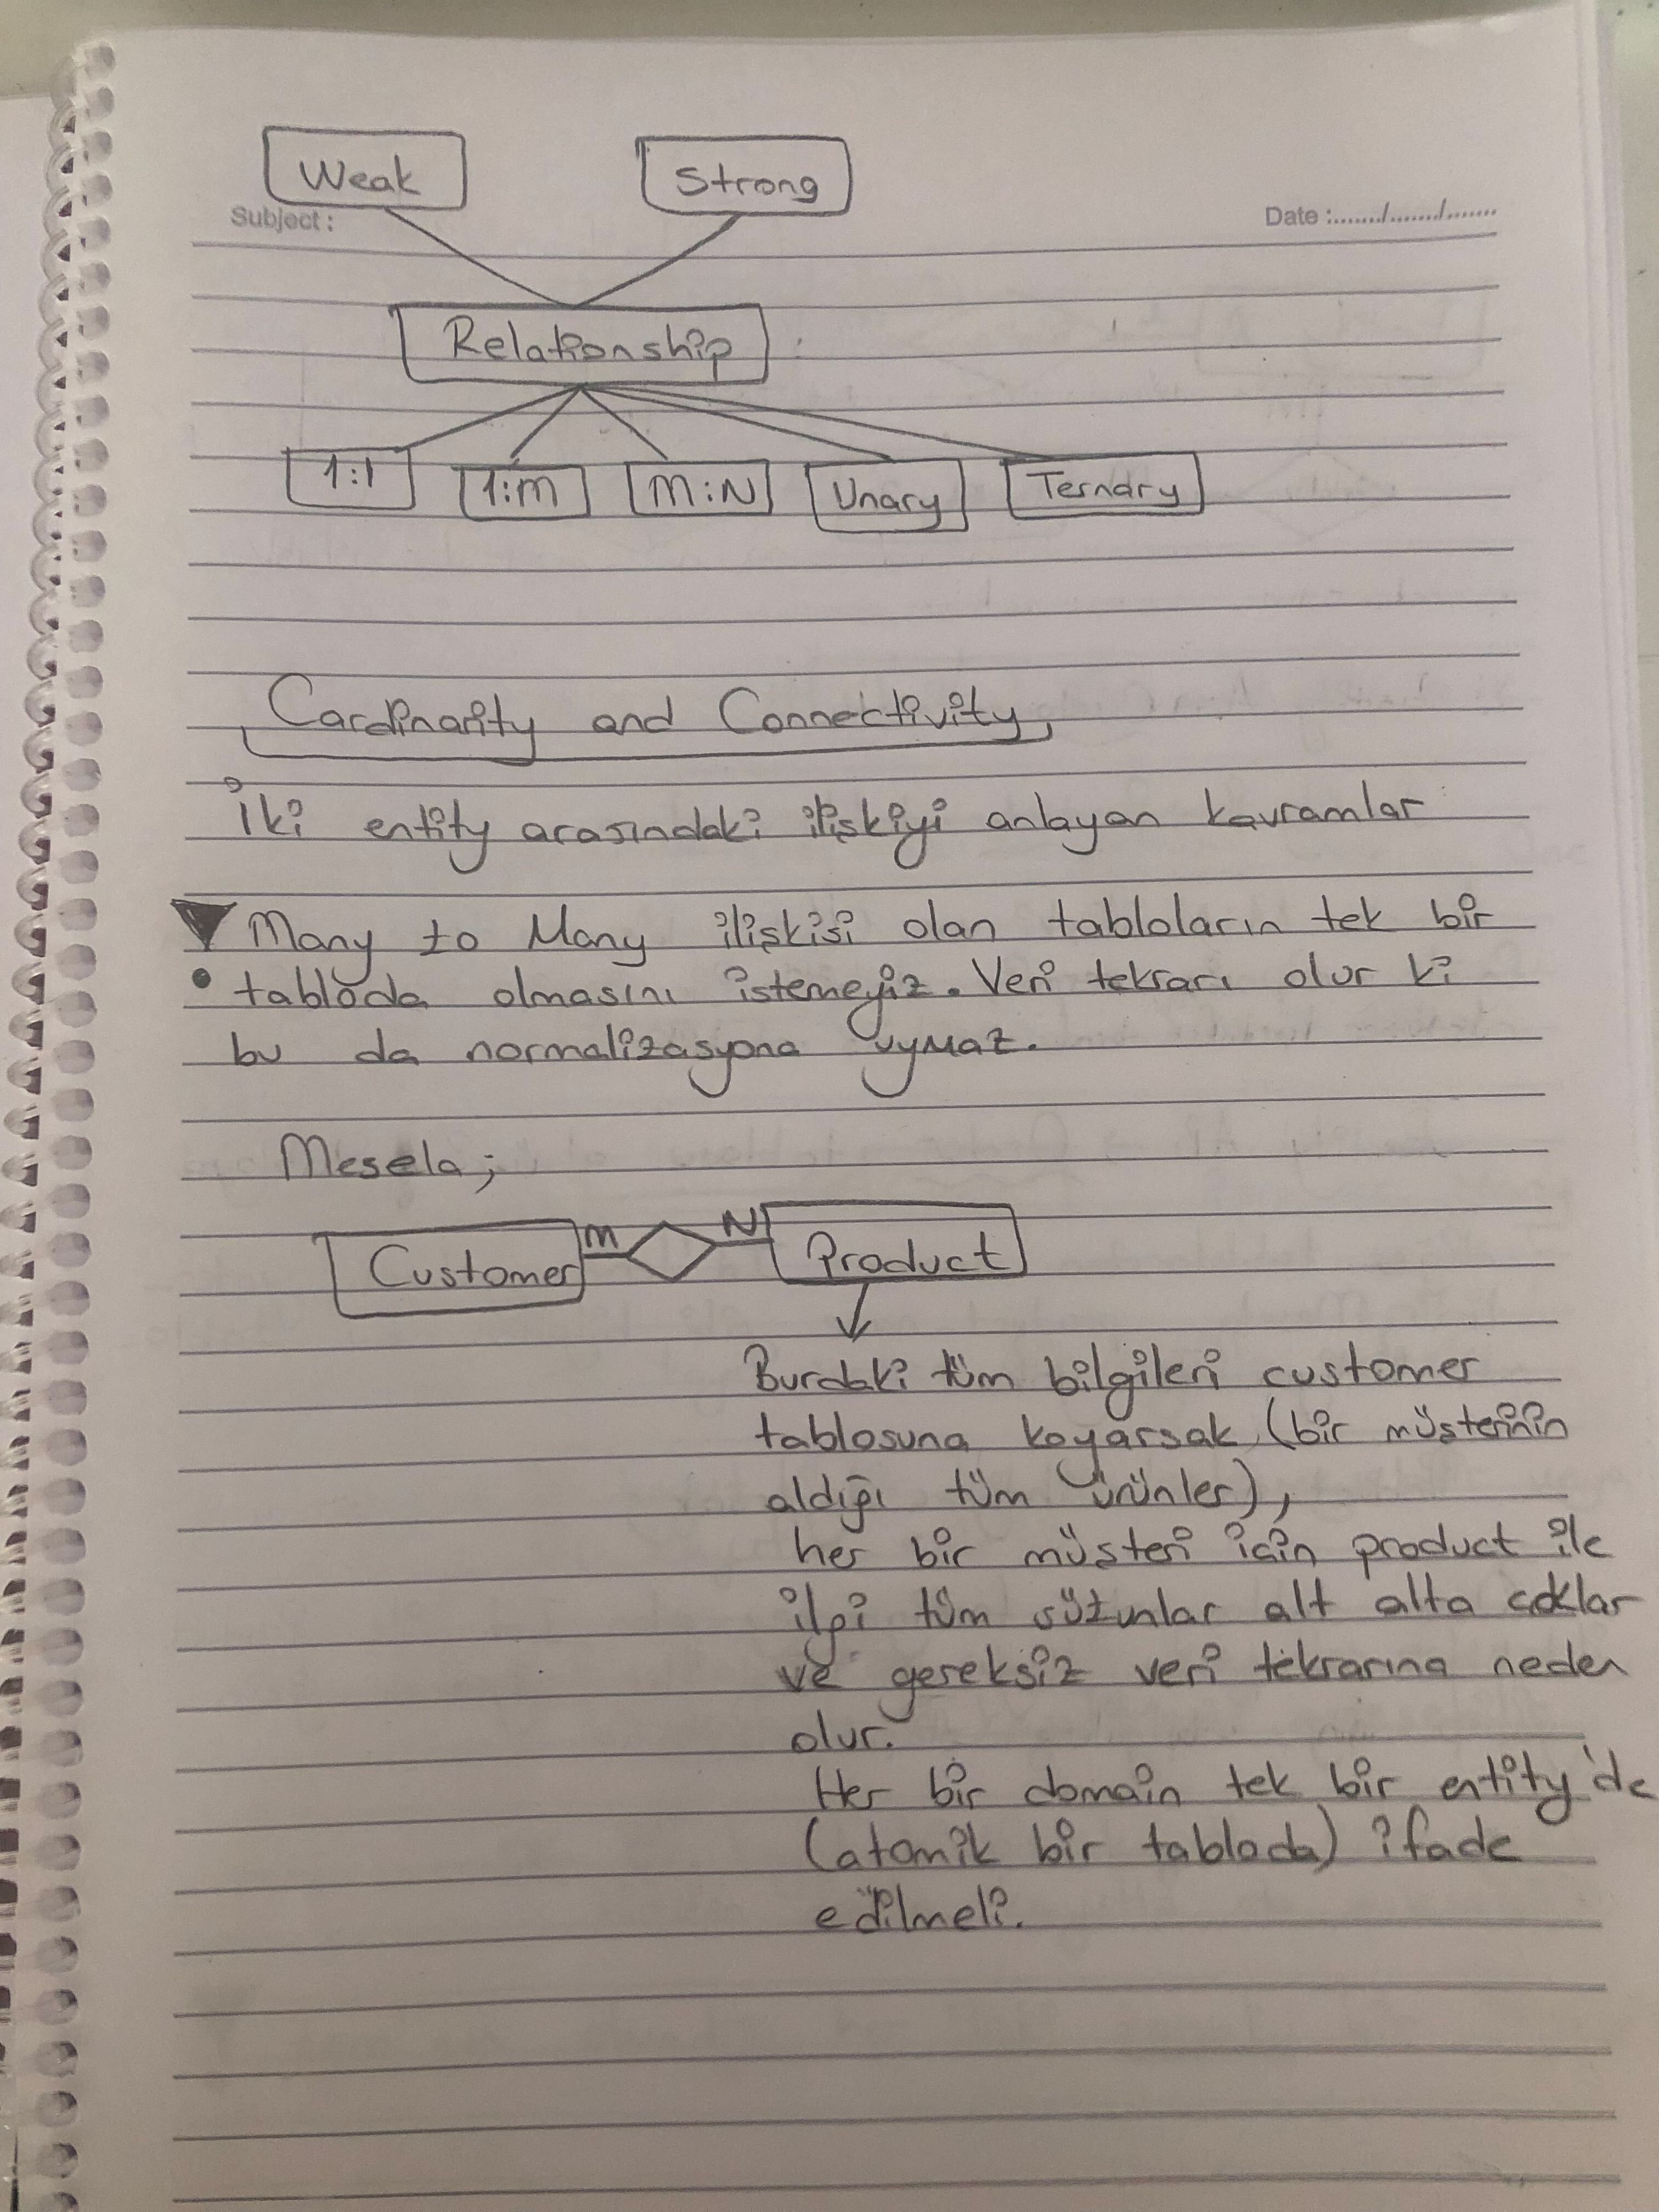 Weak Strong
Subject : Date :......./......./.......
Relationship :
1:1 1:M M:N Unary Ternary
Cardinarity and Connectivity
İki entity arasındaki ilişkiyi anlayan kavramlar
Many to Many ilişkisi olan tabloların tek bir
tabloda olmasını istemeyiz. Veri tekrarı olur ki
bu da normalizasyona uymaz.
Mesela;
Customer M N Product
Burdaki tüm bilgileri customer
tablosuna koyarsak (bir müşterinin
aldığı tüm ürünler),
her bir müşteri için product ile
ilgi tüm sütunlar alt alta çoklar
ve gereksiz veri tekrarına neden
olur.
Her bir domain tek bir entity'de
(atomik bir tabloda) ifade
edilmeli.